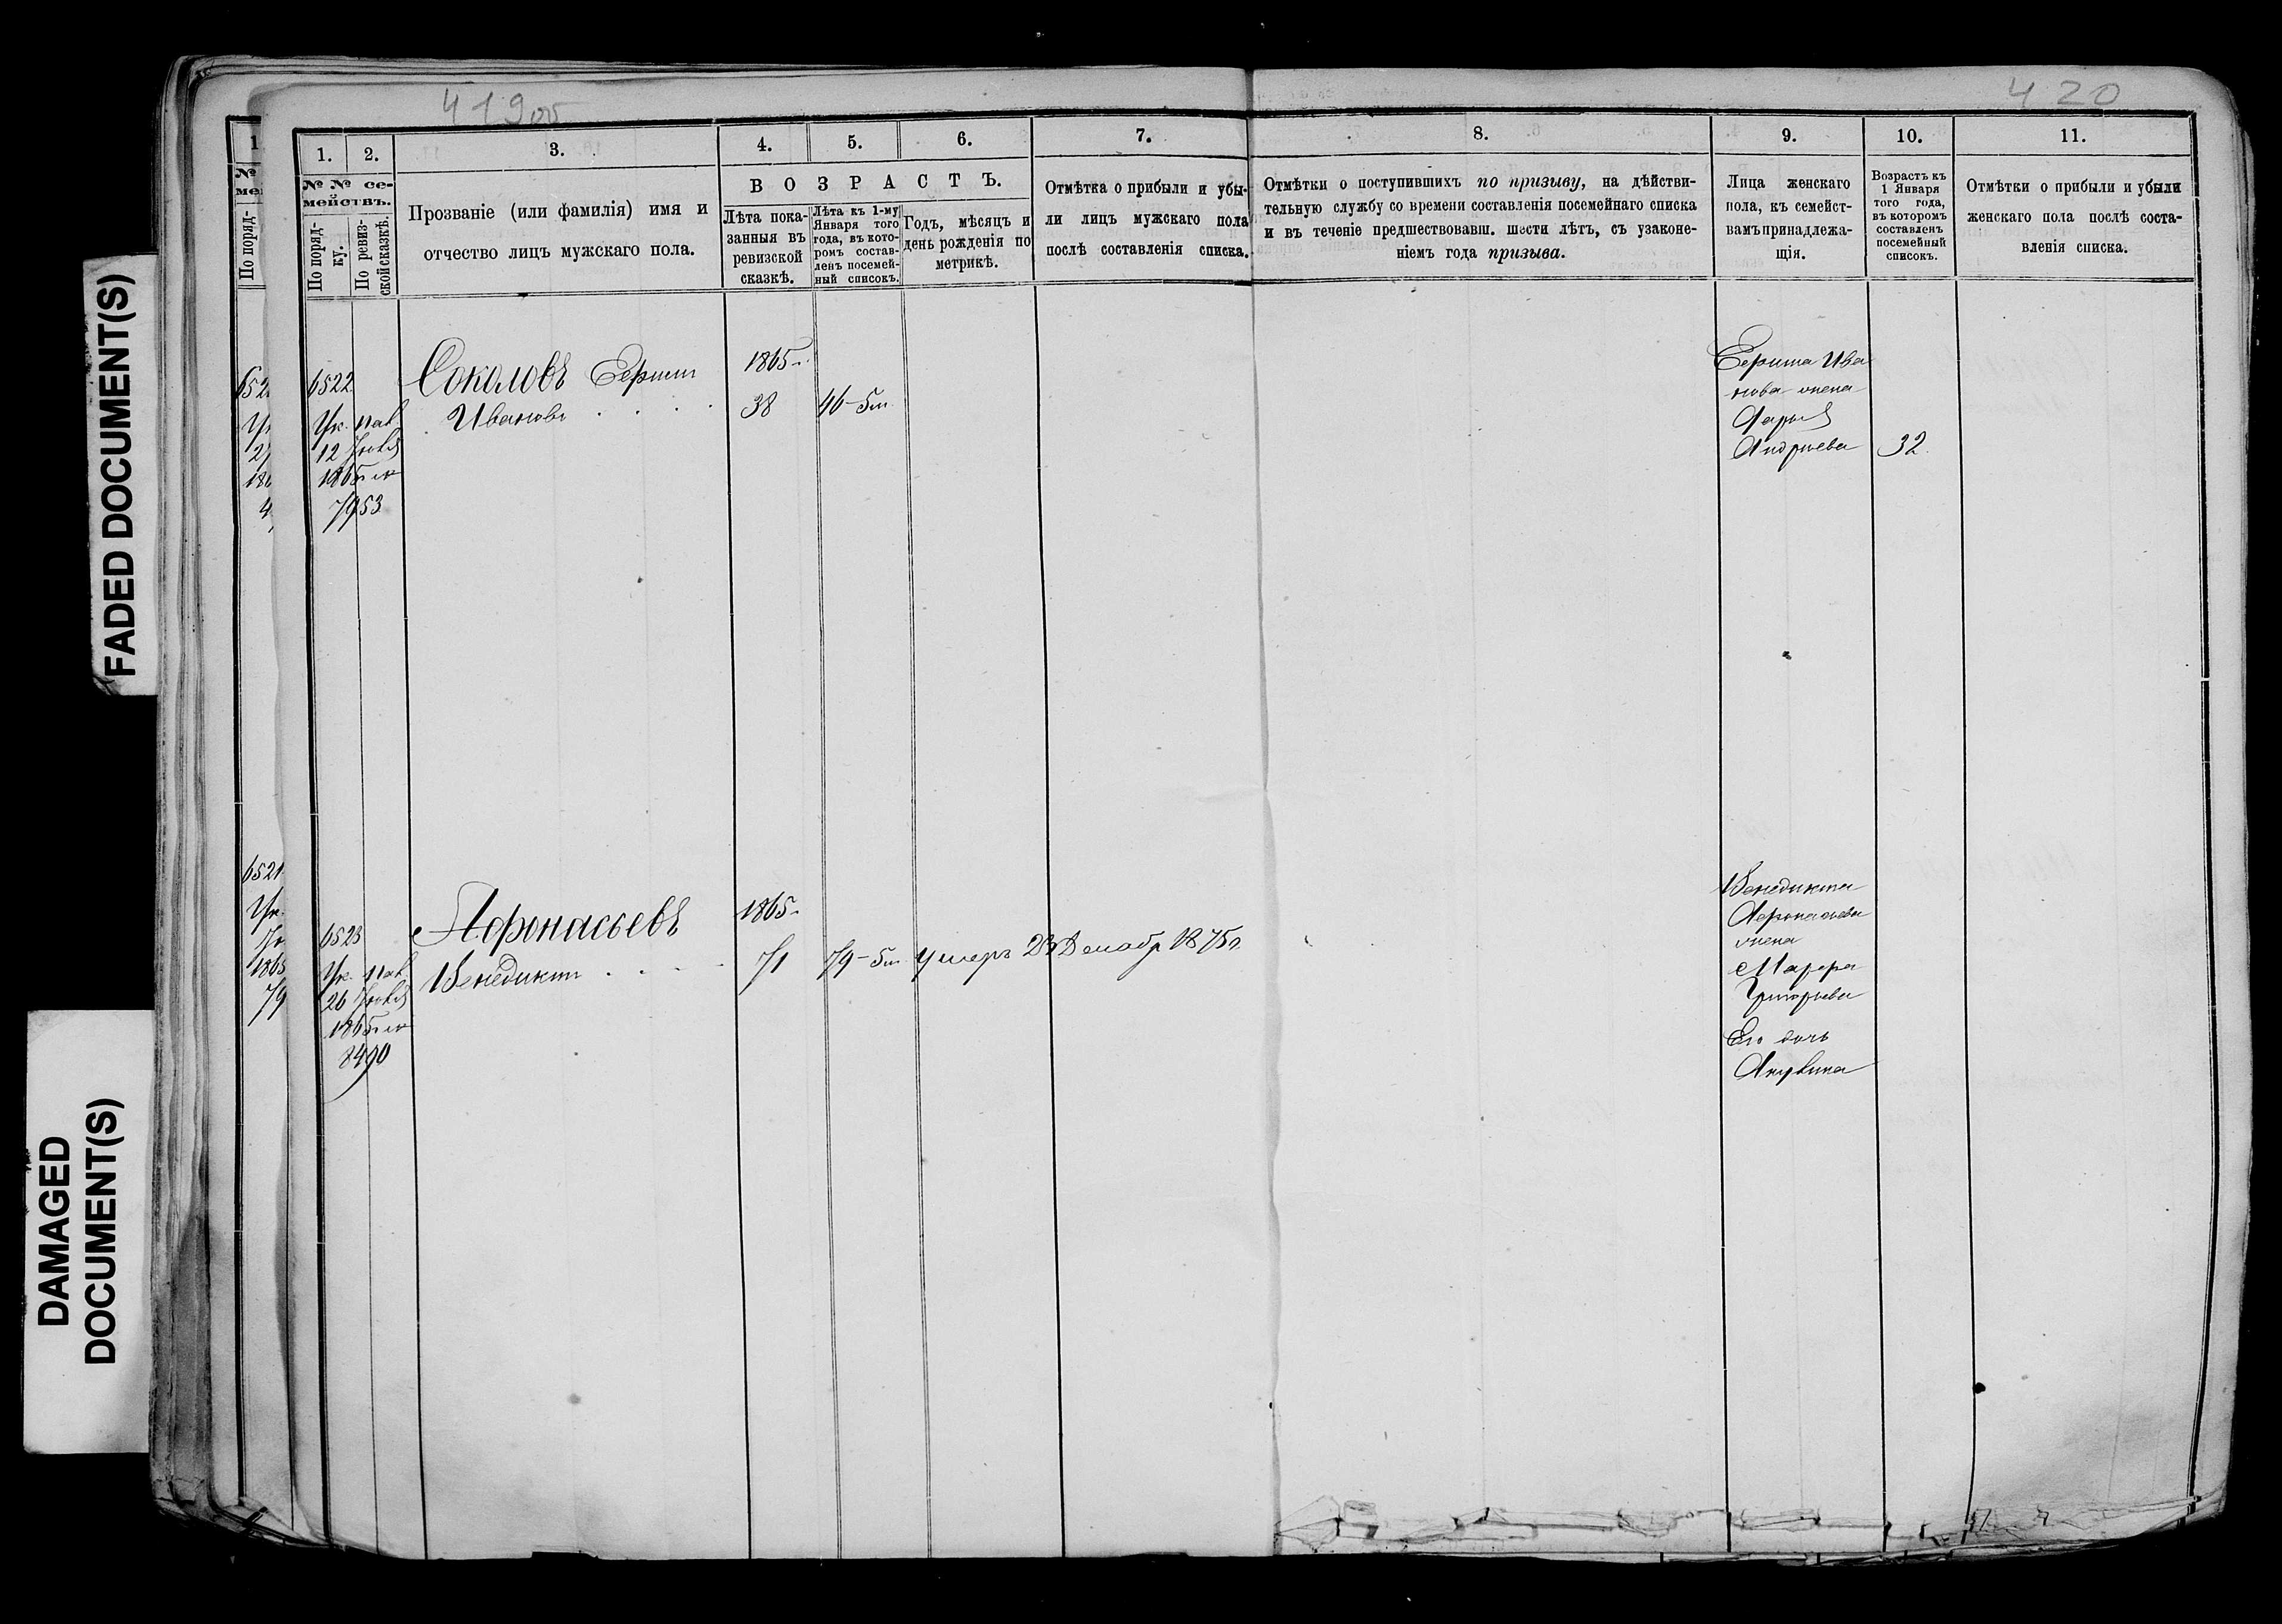 FADED DOCUMENT(S)
DAMAGED
DOCUMENT(S)
419об
420
1. 2. 3. 4. 5. 6. 7. 8. 9. 10. 11.
№ № се-
мействъ.
По поряд-
ку.
По ревиз-
ской сказкѣ.
Прозваніе (или фамилія) имя и
отчество лицъ мужскаго пола.
ВОЗРАСТЪ.
Лѣта пока-
занныя въ
ревизской
сказкѣ.
Лѣта къ 1-му
Января того
года, въ кото-
ромъ состав-
ленъ посемей-
ный списокъ.
Годъ, мѣсяцъ и
день рожденія по
метрикѣ.
Отмѣтка о прибыли и убы-
ли лицъ мужскаго пола
послѣ составленія списка.
Отмѣтки о поступившихъ по призыву, на дѣйстви-
тельную службу со времени составленія посемейнаго списка
и въ теченіе предшествовавш. шести лѣтъ, съ узаконе-
ніемъ года призыва.
Лица женскаго
пола, къ семейст-
вамъ принадлежа-
щія.
Возрастъ къ
1 Января
того года,
въ которомъ
составленъ
посемейный
списокъ.
Отмѣтки о прибыли и убыли
женскаго пола послѣ соста-
вленія списка.
6522
Ук. пал.
12
1865
7953
Соколовъ
Ивановъ
1865
38
46
Ива
нова жена
Дарья
Андреева
32
6523
Ук. пал.
26
1865
8490
Афонасьевъ
Венедиктъ
1865
71
79
умеръ
Декабр 1875
Венедикта
Афонасьева
жена
Марфа
Григорьева
Его дочь
Акулина
6521